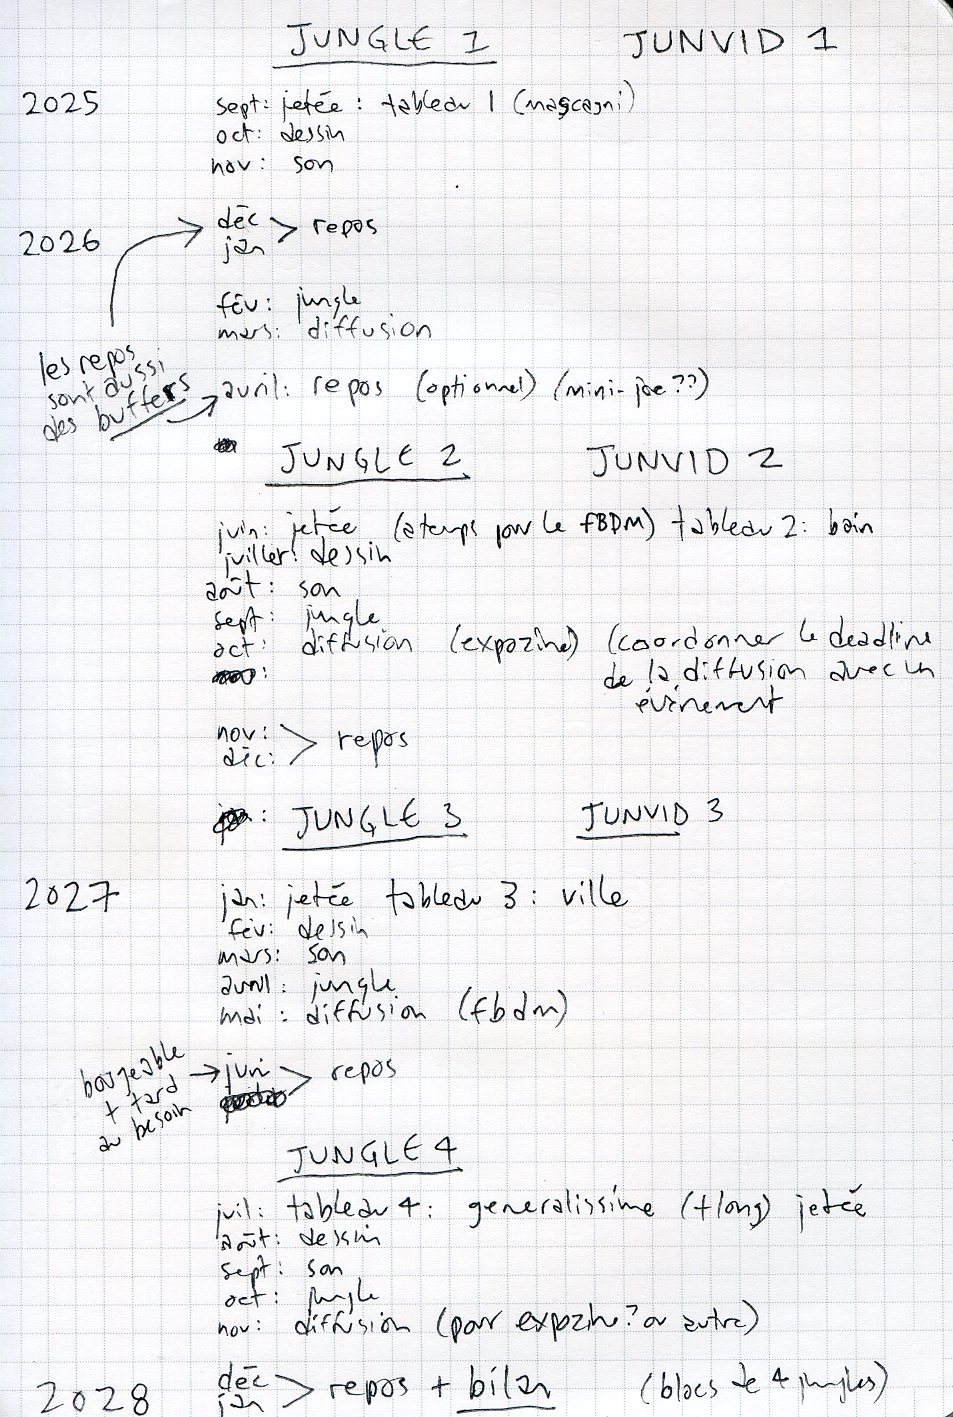 JUNGLE 1 JUNVID 1
2025 sept: jetée : tableau 1 (mascagni)
oct: dessin
nov: son
déc
2026 jan > repos
fév: jungle
mars: diffusion
les repos
sont aussi
des buffers
avril: repos (optionnel) (mini-joe ??)
JUNGLE 2 JUNVID 2
juin: jetée (a temps pour le fBDM) tableau 2: bain
juillet: dessin
août: son
sept: jungle
oct: diffusion (expozine) (coordonner le deadline
de la diffusion avec un
évènement
nov:
déc: > repos
: JUNGLE 3 JUNVID 3
2027 jan: jetée tableau 3: ville
fév: dessin
mars: son
avril: jungle
mai: diffusion (fbdm)
bougeable
+ tard
au besoin
juin > repos
JUNGLE 4
juil: tableau 4: generalissime (+ long) jetée
août: dessin
sept: son
oct: jungle
nov: diffusion (pour expozine? ou autre)
déc
2028 jan > repos + bilan (blocs de 4 jungles)